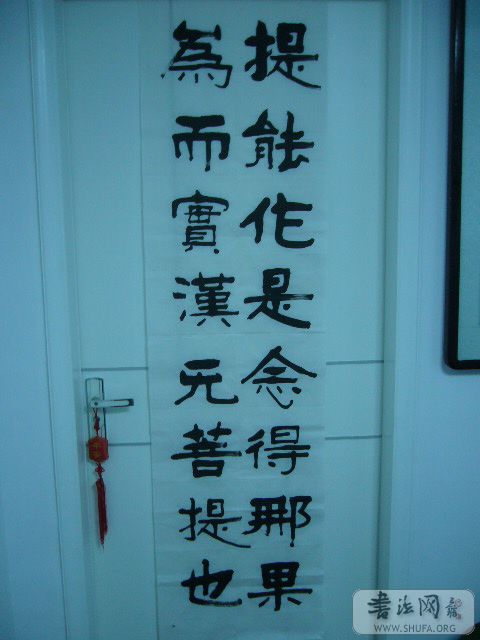 提能作是念得那果
為而實漢无菩提也
書法网
WWW.SHUFA.ORG